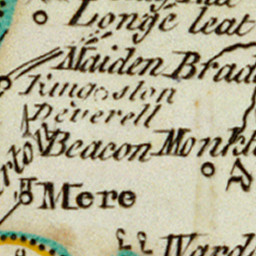 Longe leat
Maiden Brad
Kingston
Deverell
Beacon Monkt
Mere
Ward